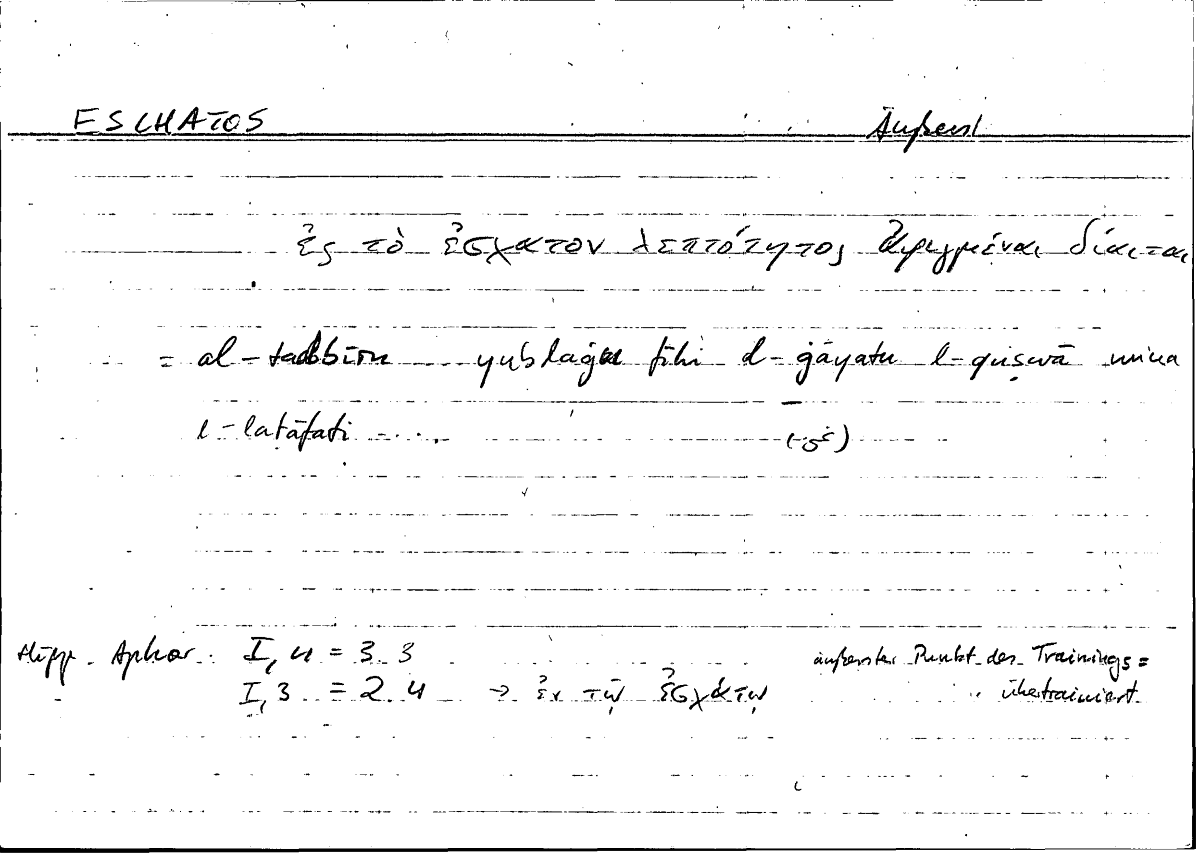 ESCHATOS Äußerst
ἐς τὸ ἔσχατον λεπτότητος ἀφιγμέναι δίαιται
= al-tadbīru .... yublaġu fīhi l-ġāyatu l-quṣwā mina
l-laṭāfati .....
Hipp. Aphor. I, 4 = 3.3 äußerster Punkt des Trainings =
I, 3 = 2.4 → ἐν τῷ ἐσχάτῳ übertrainiert.